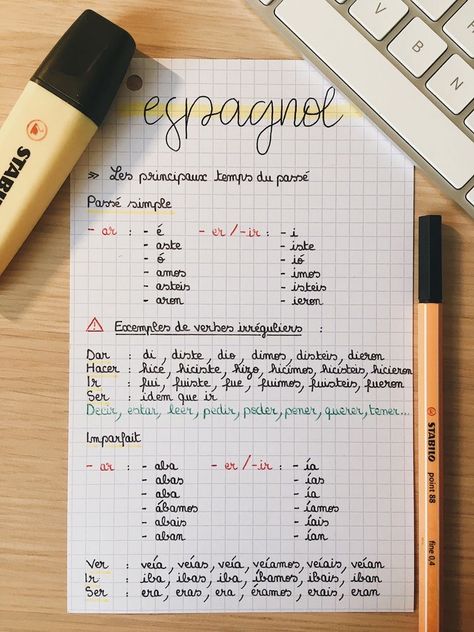 espagnol
» Les principaux temps du passé
Passé simple
- ar : - é - er / -ir : - i
- aste - iste
- ó - ió
- amos - imos
- asteis - isteis
- aron - ieron
Exemples de verbes irréguliers :
Dar : di, diste, dio, dimos, disteis, dieron
Hacer : hice, hiciste, hizo, hicimos, hicisteis, hicieron
Ir : fui, fuiste, fue, fuimos, fuisteis, fueron
Ser : idem que ir
Decir, estar, leer, pedir, poder, poner, querer, tener...
Imparfait
- ar : - aba - er / -ir : - ía
- abas - ías
- aba - ía
- ábamos - íamos
- abais - íais
- aban - ían
Ver : veía, veías, veía, veíamos, veíais, veían
Ir : iba, ibas, iba, íbamos, ibais, iban
Ser : era, eras, era, éramos, erais, eran
STABILO
STABILO point 88 fine 0,4
V
B
N